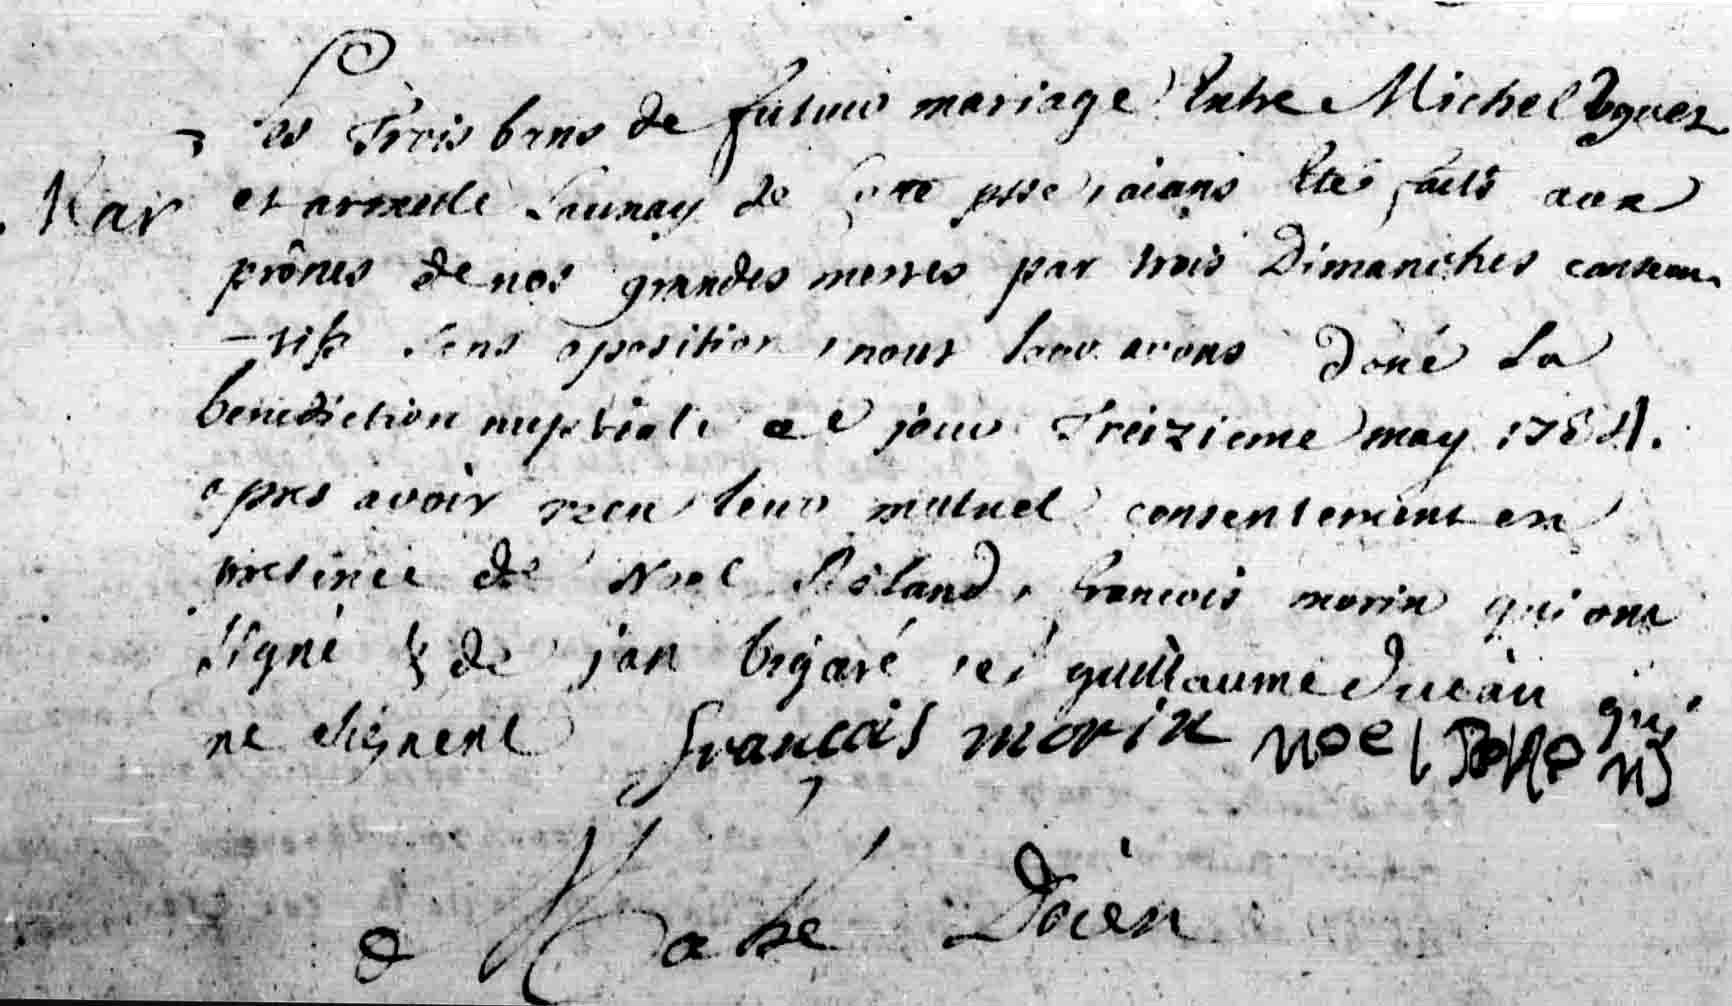 Les Trois bans de futur mariage Entre Michel Eguez
Mar et armelle Launay de cette psse, aians Etés faits aux
prônes de nos grandes messes par trois Dimanches consecu
-tifs sens oposition, nous leur avons doné La
benediction nuptiale ce jour Treizieme may 1784.
apres avoir recu leur mutuel consentement en
presence de Noel Roland, francois morin qui ont
signé & de jan bigaré, et guillaume duean qui
ne signent françois morin noel
Mahé Doien